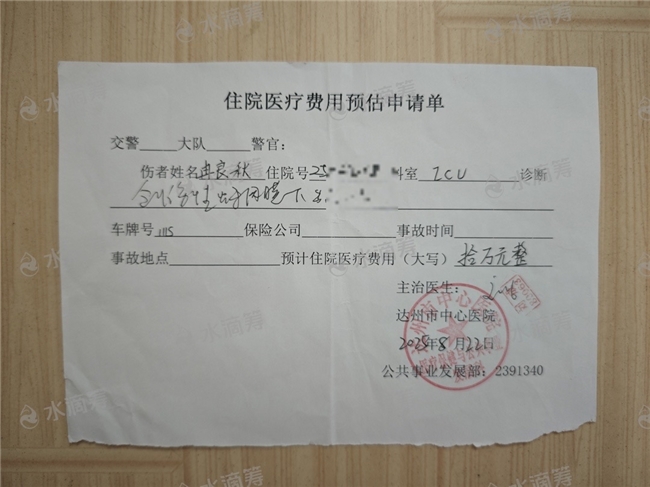 住院医疗费用预估申请单
交警 大队 警官:
伤者姓名冉良秋 住院号25 科室 ICU 诊断
创伤性蛛网膜下
车牌号 保险公司 事故时间
事故地点 预计住院医疗费用（大写）拾万元整
主治医生:
达州市中心医院
2025年8月22日
公共事业发展部：2391340
水滴筹